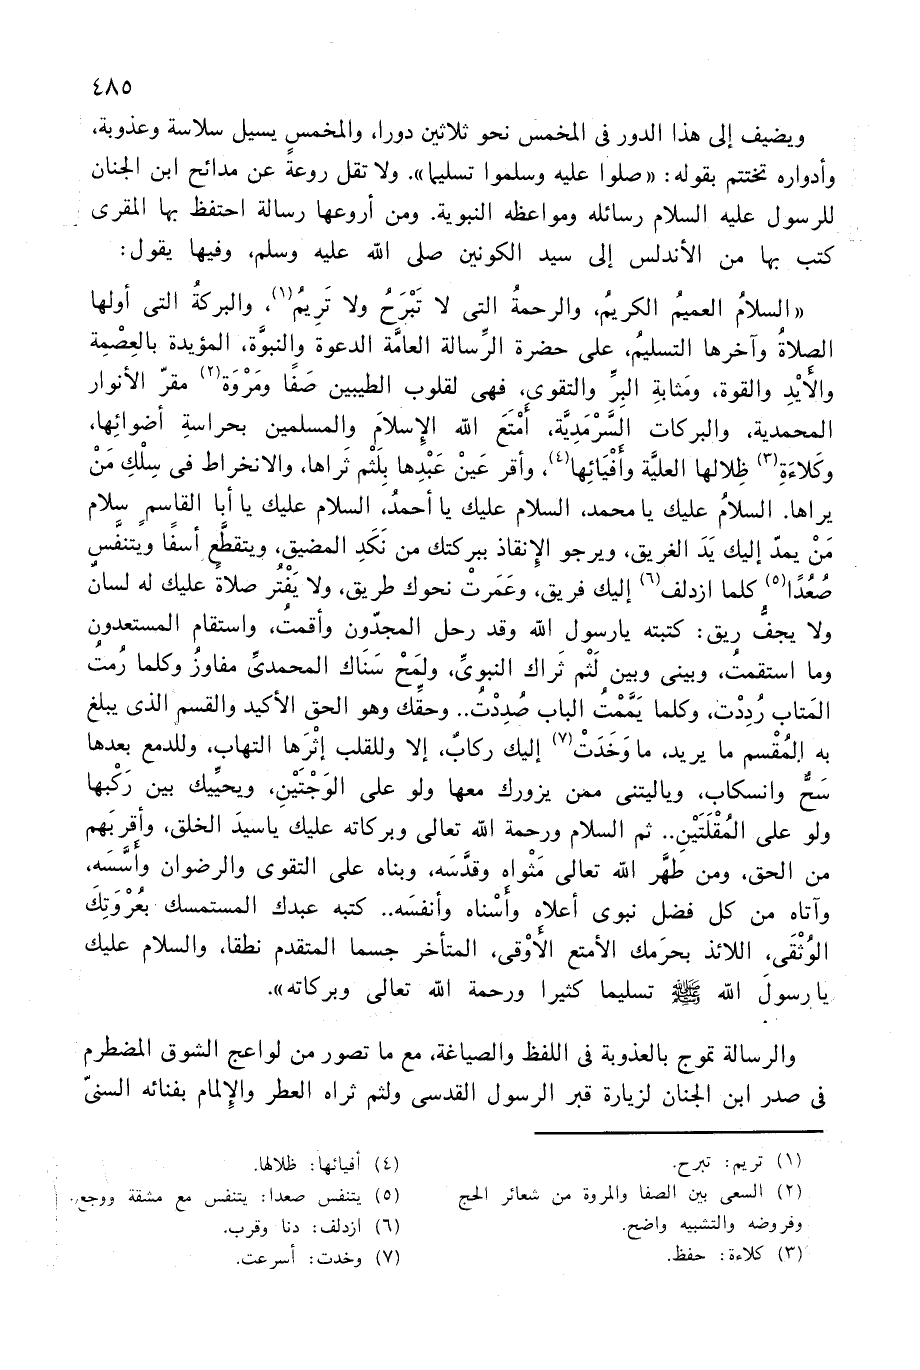 ٤٨٥
ويضيف إلى هذا الدور فى المخمس نحو ثلاثين دورا، والمخمس يسيل سلاسة وعذوبة،
وأدواره تختتم بقوله: «صلوا عليه وسلموا تسليما». ولا تقل روعةً عن مدائح ابن الجنان
للرسول عليه السلام رسائله ومواعظه النبوية. ومن أروعها رسالة احتفظ بها المقرى
كتب بها من الأندلس إلى سيد الكونين صلى الله عليه وسلم، وفيها يقول:
«السلامُ العميمُ الكريمُ، والرحمةُ التى لا تَبْرَحُ ولا تَرِيمُ(١)، والبركةُ التى أولها
الصلاةُ وآخرها التسليمُ، على حضرة الرِّسالة العامَّة الدعوة والنبوَّة، المؤيدة بالعِصْمة
والأَيْدِ والقوة، ومَثابةِ البِرِّ والتقوى، فهى لقلوب الطيبين صَفًا ومَرْوَة(٢) مقرّ الأنوار
المحمدية، والبركات السَّرْمَدِيَّة، أَمْتَعَ الله الإسلامَ والمسلمين بحراسةِ أضوائها،
وكَلاءَةِ(٣) ظِلالها العليَّة وأَفْيَائِها(٤)، وأقر عَينْ عَبْدِها بِلَثْم ثَراها، والانخراط فى سِلْكِ مَنْ
يراها. السلامُ عليك يا محمد، السلام عليك يا أحمدُ، السلام عليك يا أبا القاسم سلام
مَنْ يمدّ إليك يَدَ الغريق، ويرجو الإنقاذ ببركتك من نَكَدِ المضيق، ويتقطَّع أسفًا ويتنفَّس
صُعُدًا(٥) كلما ازدلف(٦) إليك فريق، وعَمَرتْ نحوك طريق، ولا يَفْتُر صلاةً عليك له لسانٌ
ولا يجفُّ ريق: كتبته يارسول الله وقد رحل المجدّون وأقمتُ، واستقام المستعدون
وما استقمتُ، وبينى وبين لَثْم ثَراك النبوىِّ، ولَمْحِ سَنَاك المحمدىِّ مفاوزُ وكلما رُمتُ
المَتاب رُدِدْت، وكلما يَمَّمْتُ الباب صُدِدْتُ.. وحقِّك وهو الحق الأكيد والقسم الذى يبلغ
به المُقْسم ما يريد، ما وَخَدَتْ(٧) إليك ركابٌ، إلا وللقلب إثْرَها التهاب، وللدمع بعدها
سَحٌّ وانسكاب، وياليتنى ممن يزورك معها ولو على الوَجْنَتَيْنِ، ويحيِّيك بين رَكْبِها
ولو على المُقْلَتَيْنِ.. ثم السلام ورحمة الله تعالى وبركاته عليك ياسيدَ الخلق، وأقربَهم
من الحق، ومن طهَّر الله تعالى مَثْواه وقدَّسَه، وبناه على التقوى والرضوان وأَسَّسَه،
وآتاه من كل فضل نبوى أعلاه وأَسْناه وأنفسَه.. كتبه عبدك المستمسك بعُرْوَتِكَ
الوُثْقَى، اللائذ بحرَمك الأمتع الأَوْقى، المتأخر جسما المتقدم نطقا، والسلام عليك
يا رسولَ الله ﷺ تسليما كثيرا ورحمة الله تعالى وبركاته».
والرسالة تموج بالعذوبة فى اللفظ والصياغة، مع ما تصور من لواعج الشوق المضطرم
فى صدر ابن الجنان لزيارة قبر الرسول القدسى ولثم ثراه العطر والإلمام بفنائه السنىّ
(١) تريم: تبرح.
(٢) السعى بين الصفا والمروة من شعائر الحج
وفروضه والتشبيه واضح.
(٣) كلاءة: حفظ.
(٤) أفيائها: ظلالها.
(٥) يتنفس صعدا: يتنفس مع مشقة ووجع.
(٦) ازدلف: دنا وقرب.
(٧) وخدت: أسرعت.